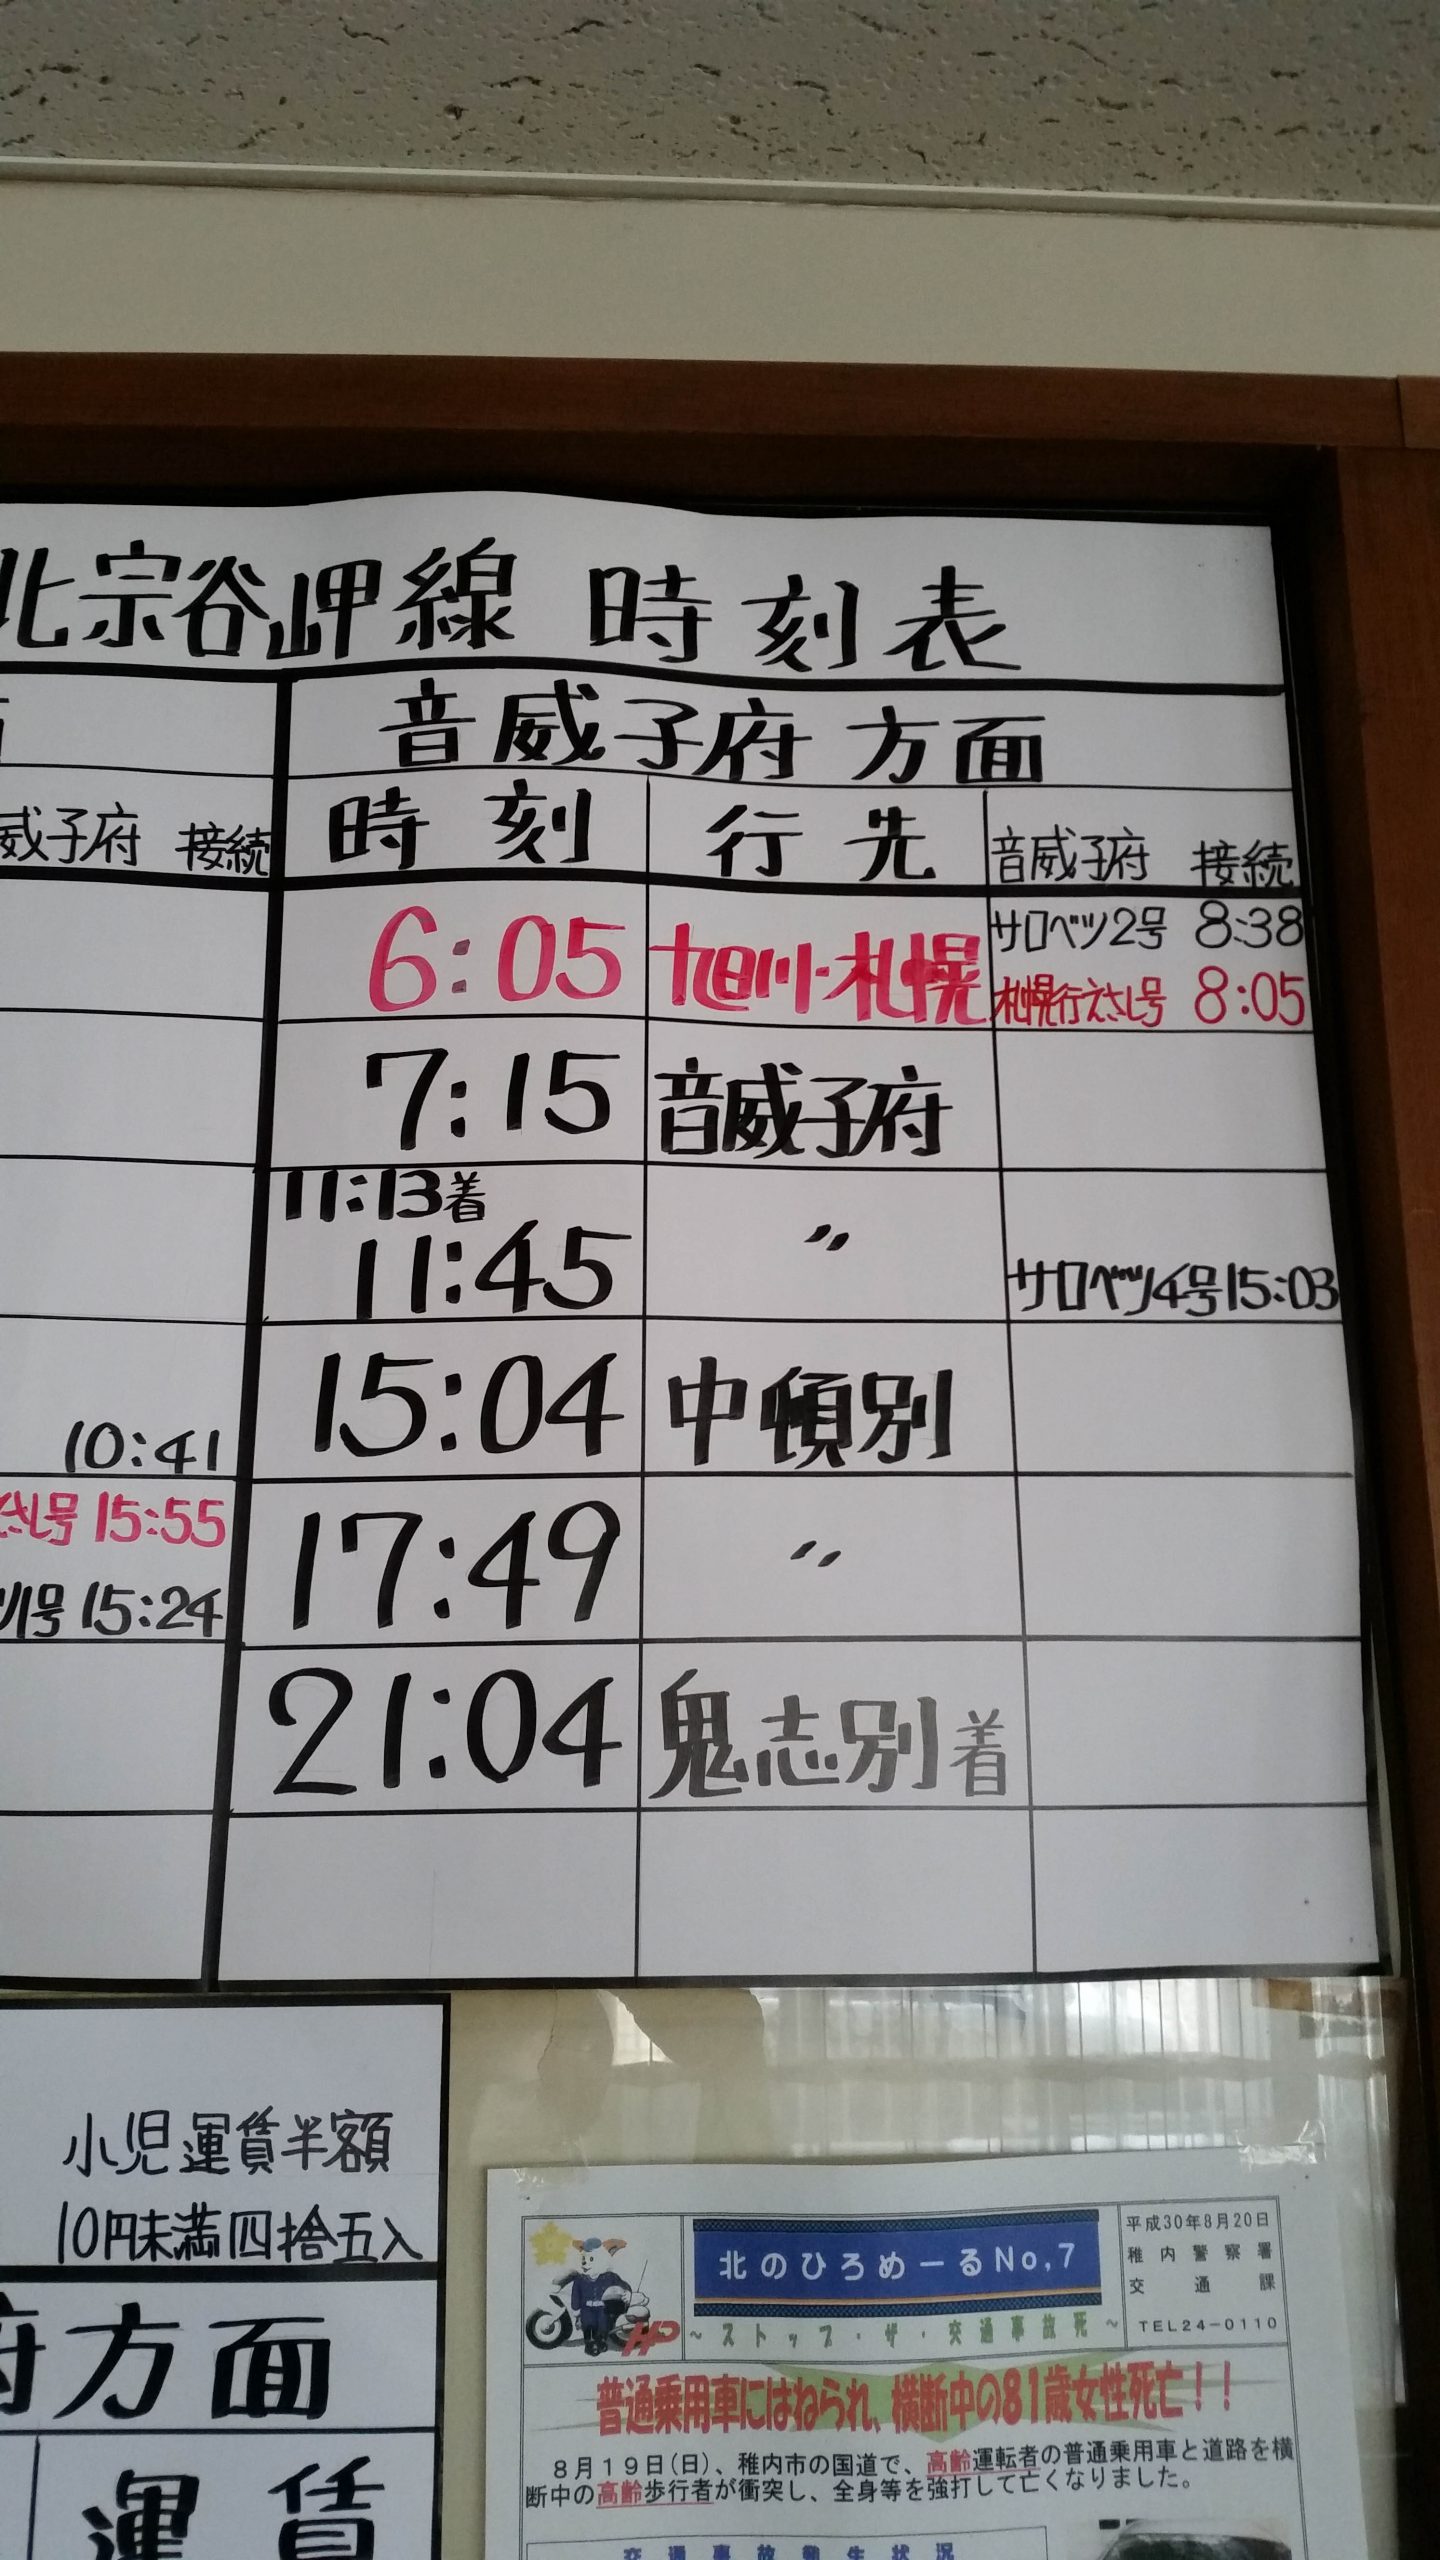 北宗谷岬線 時刻表
音威子府 方面
威子府 接続
時刻 行先 音威子府 接続
6:05 旭川・札幌 サロベツ2号 8:38
札幌行えさし号 8:05
7:15 音威子府
11:13着
11:45 〃 サロベツ4号 15:03
10:41
15:04 中頓別
さし号 15:55
17:49 〃
ツ1号 15:24
21:04 鬼志別着
小児運賃半額
10円未満四捨五入
府方面
運賃
北のひろめーるNo,7
平成30年8月20日
稚内警察署
交通課
TEL24-0110
HP
～ストップ・ザ・交通事故死～
普通乗用車にはねられ、横断中の81歳女性死亡！！
8月19日(日)、稚内市の国道で、高齢運転者の普通乗用車と道路を横
断中の高齢歩行者が衝突し、全身等を強打して亡くなりました。
交通事故発生状況